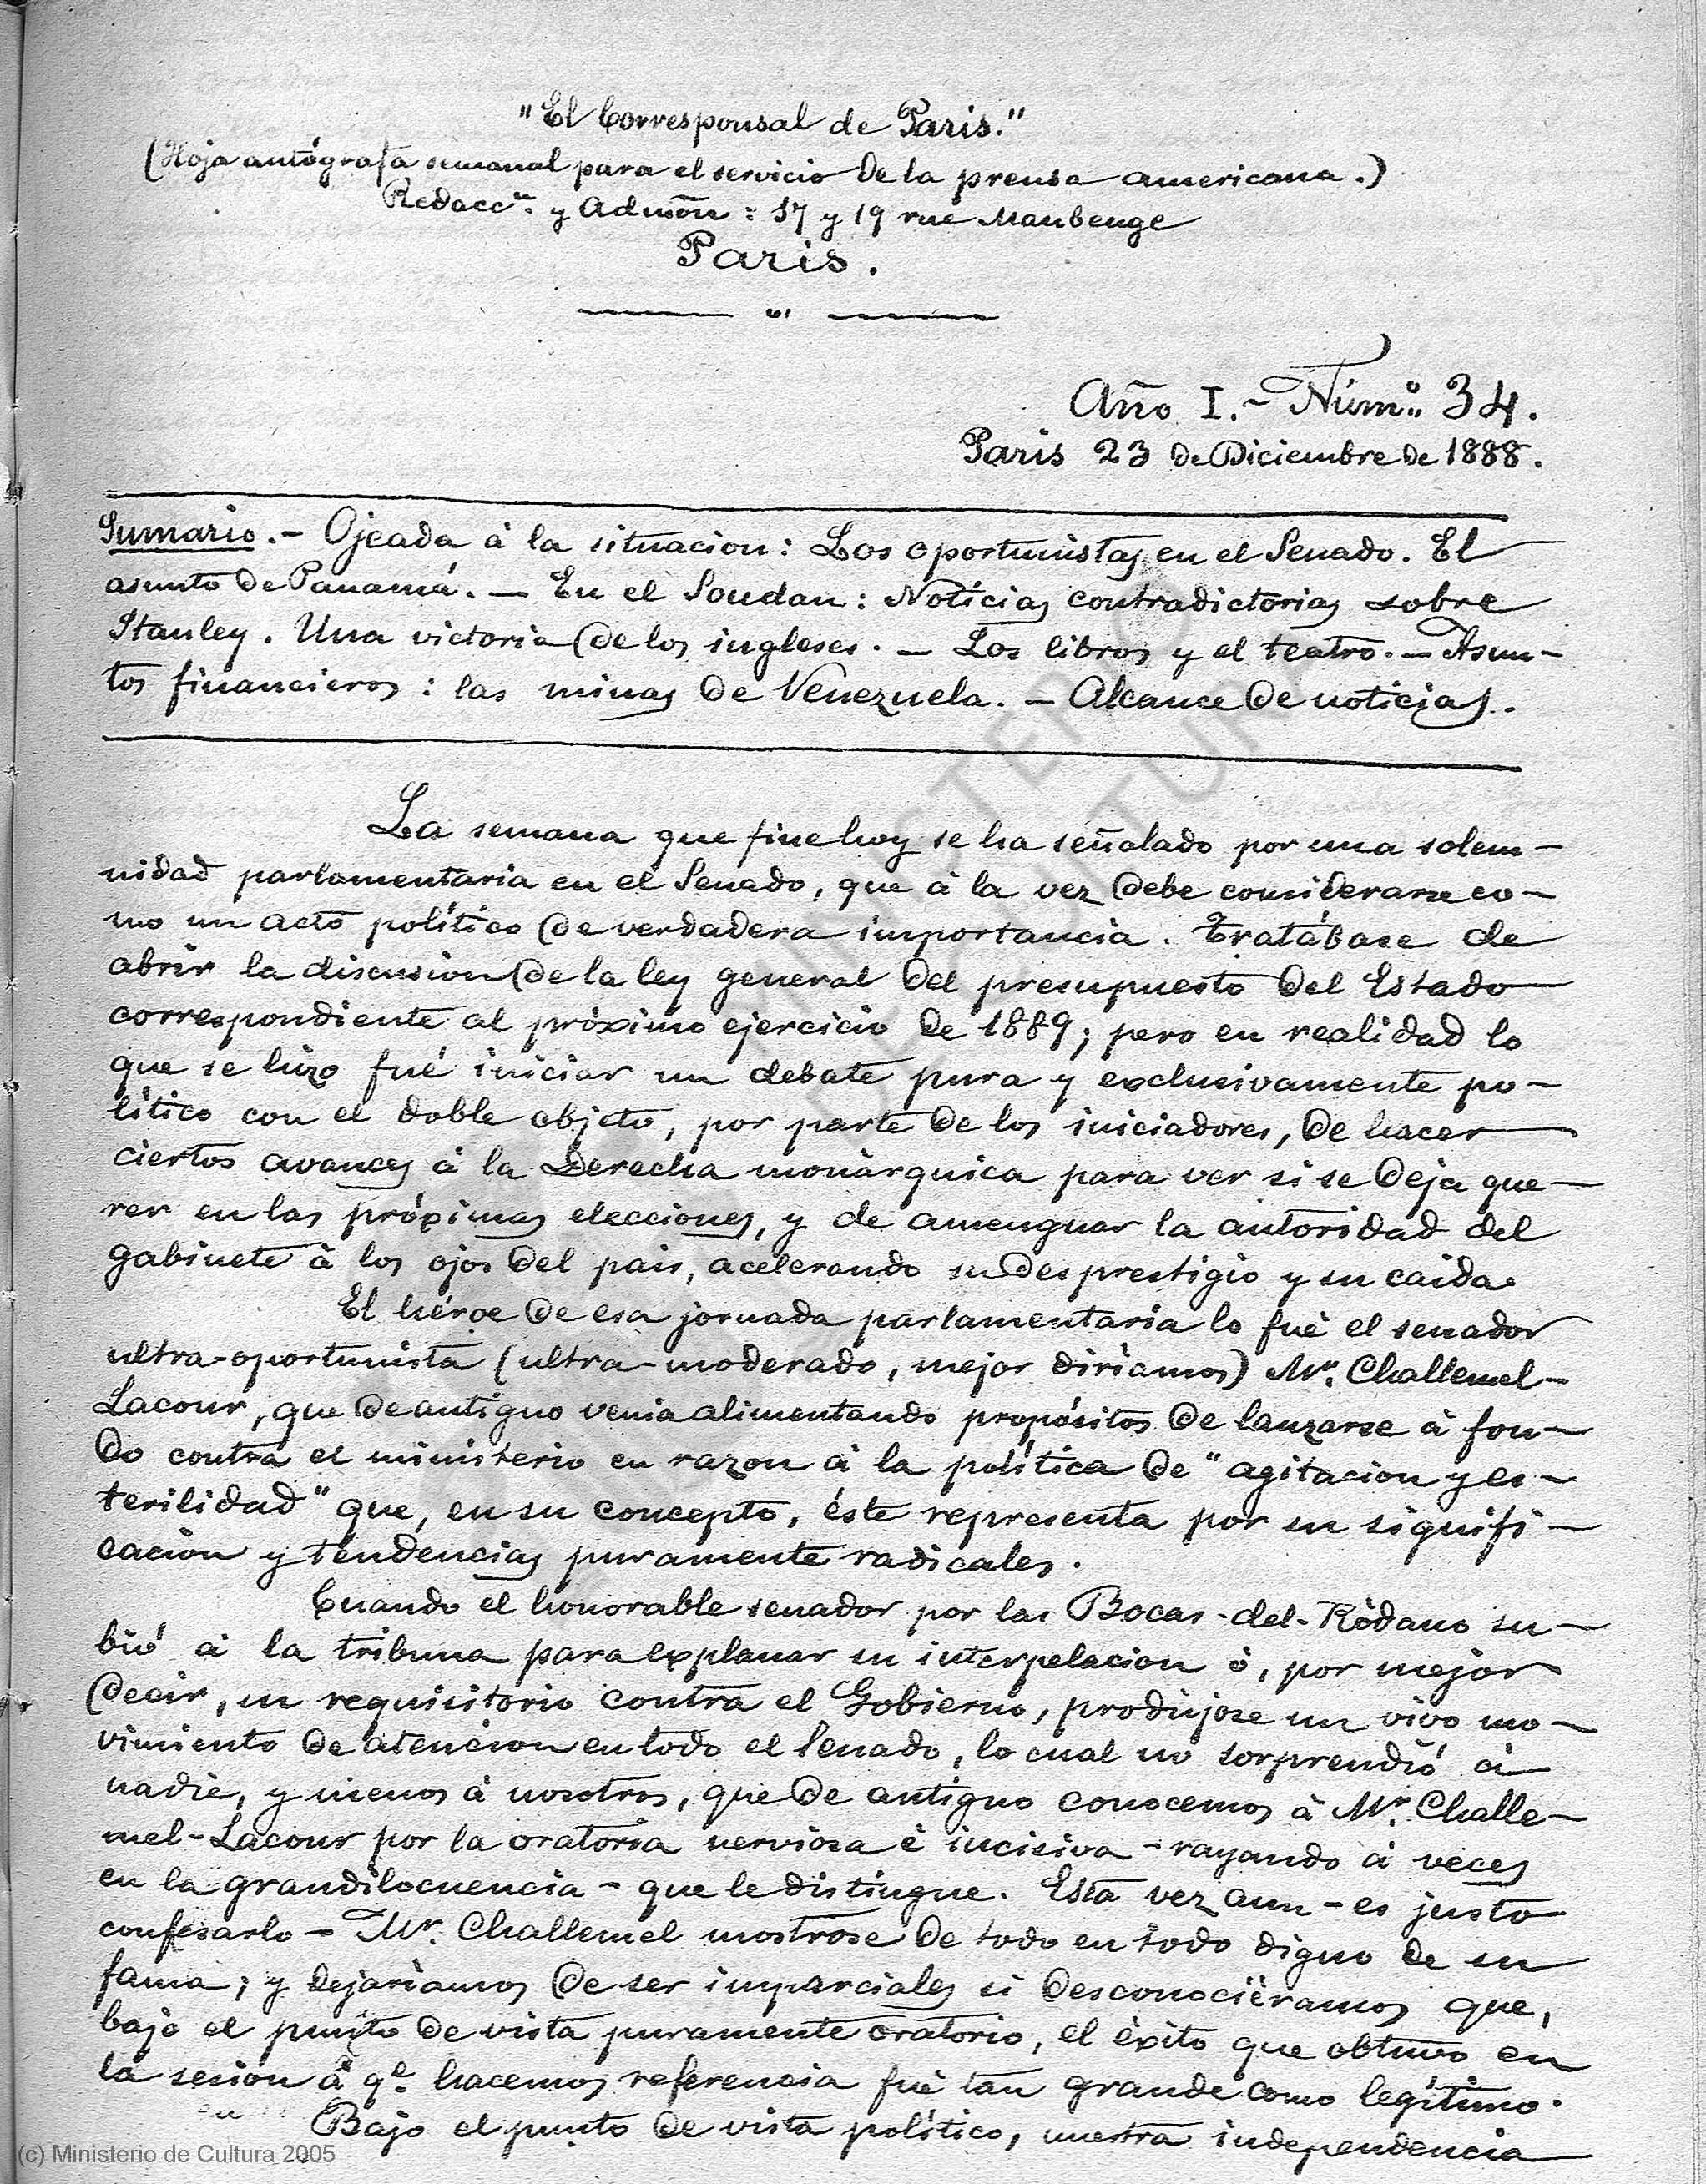 "El Corresponsal de Paris."
(Hoja autógrafa semanal para el servicio de la prensa americana.)
Redacc.ⁿ y Admōn: 17 y 19 rue Maubeuge
Paris.
Año I. - Núm.º 34.
Paris 23 de Diciembre de 1888.
Sumario. - Ojeada á la situacion: Los oportunistas en el Senado. El
asunto de Panamá. — En el Soudan: Noticias contradictorias sobre
Stanley. Una victoria de los ingleses. — Los libros y el teatro. — Asun-
tos financieros: las minas de Venezuela. — Alcance de noticias.
La semana que fine hoy se ha señalado por una solem-
nidad parlamentaria en el Senado, que á la vez debe considerarse co-
mo un acto político de verdadera importancia. Tratábase de
abrir la discusion de la ley general del presupuesto del Estado
correspondiente al próximo ejercicio de 1889; pero en realidad lo
que se hizo fué iniciar un debate pura y exclusivamente po-
lítico con el doble objeto, por parte de los iniciadores, de hacer
ciertos avances á la Derecha monárquica para ver si se deja que-
rer en las próximas elecciones, y de amenguar la autoridad del
gabinete á los ojos del pais, acelerando su desprestigio y su caida.
El héroe de esa jornada parlamentaria lo fué el senador
ultra-oportunista (ultra-moderado, mejor diríamos) Mr. Challemel-
Lacour, que de antiguo venia alimentando propósitos de lanzarse á fon-
do contra el ministerio en razon á la política de "agitacion y es-
terilidad" que, en su concepto, éste representa por su signifi-
cacion y tendencias puramente radicales.
Cuando el honorable senador por las Bocas-del-Ródano su-
bió á la tribuna para explanar su interpelacion ó, por mejor
decir, su requisitorio contra el Gobierno, prodújose un vivo mo-
vimiento de atencion en todo el Senado, lo cual no sorprendió á
nadie, y menos á nosotros, que de antiguo conocemos á Mr. Challe-
mel-Lacour por la oratoria nerviosa é incisiva - rayando á veces
en la grandilocuencia - que le distingue. Esta vez aun - es justo
confesarlo - Mr. Challemel mostrose de todo en todo digno de su
fama; y dejaríamos de ser imparciales si desconociéramos que,
bajo el punto de vista puramente oratorio, el éxito que obtuvo en
la sesion á q.e hacemos referencia fué tan grande como legítimo.
Bajo el punto de vista político, nuestra independencia
MINISTERIO
DE CULTURA
(c) Ministerio de Cultura 2005